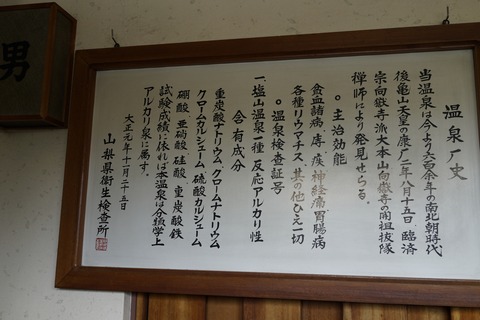 温泉厂史
当温泉は今より六百余年の南北朝時代
後亀山天皇の康广二年八月十五日 臨済
宗向嶽寺派大本山向嶽寺の開祖抜隊
禅師により発見せらる。
○主治効能
貧血諸病 痔疾 神経痛 胃腸病
各種リウマチス 其の他ひえ一切
○温泉検査証号
一、塩山温泉一種 反応アルカリ性
含有成分
重炭酸ナトリウム クロームナトリウム
クロームカルシューム 硫酸カルシューム
硼酸 亜硝酸 硅酸 重炭酸鉄
試験成績に依れば本温泉は分類学上
アルカリ泉に属す。
大正元年十一月二十五日
山梨県衛生検査所
男